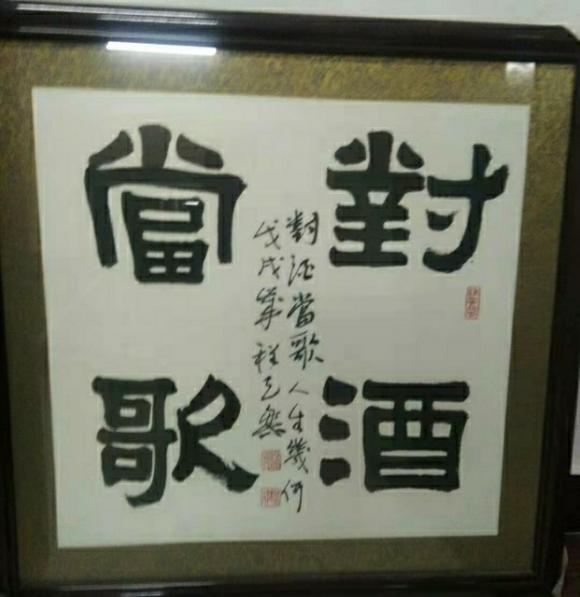 對酒
當歌
對酒當歌人生幾何
戊戌年程